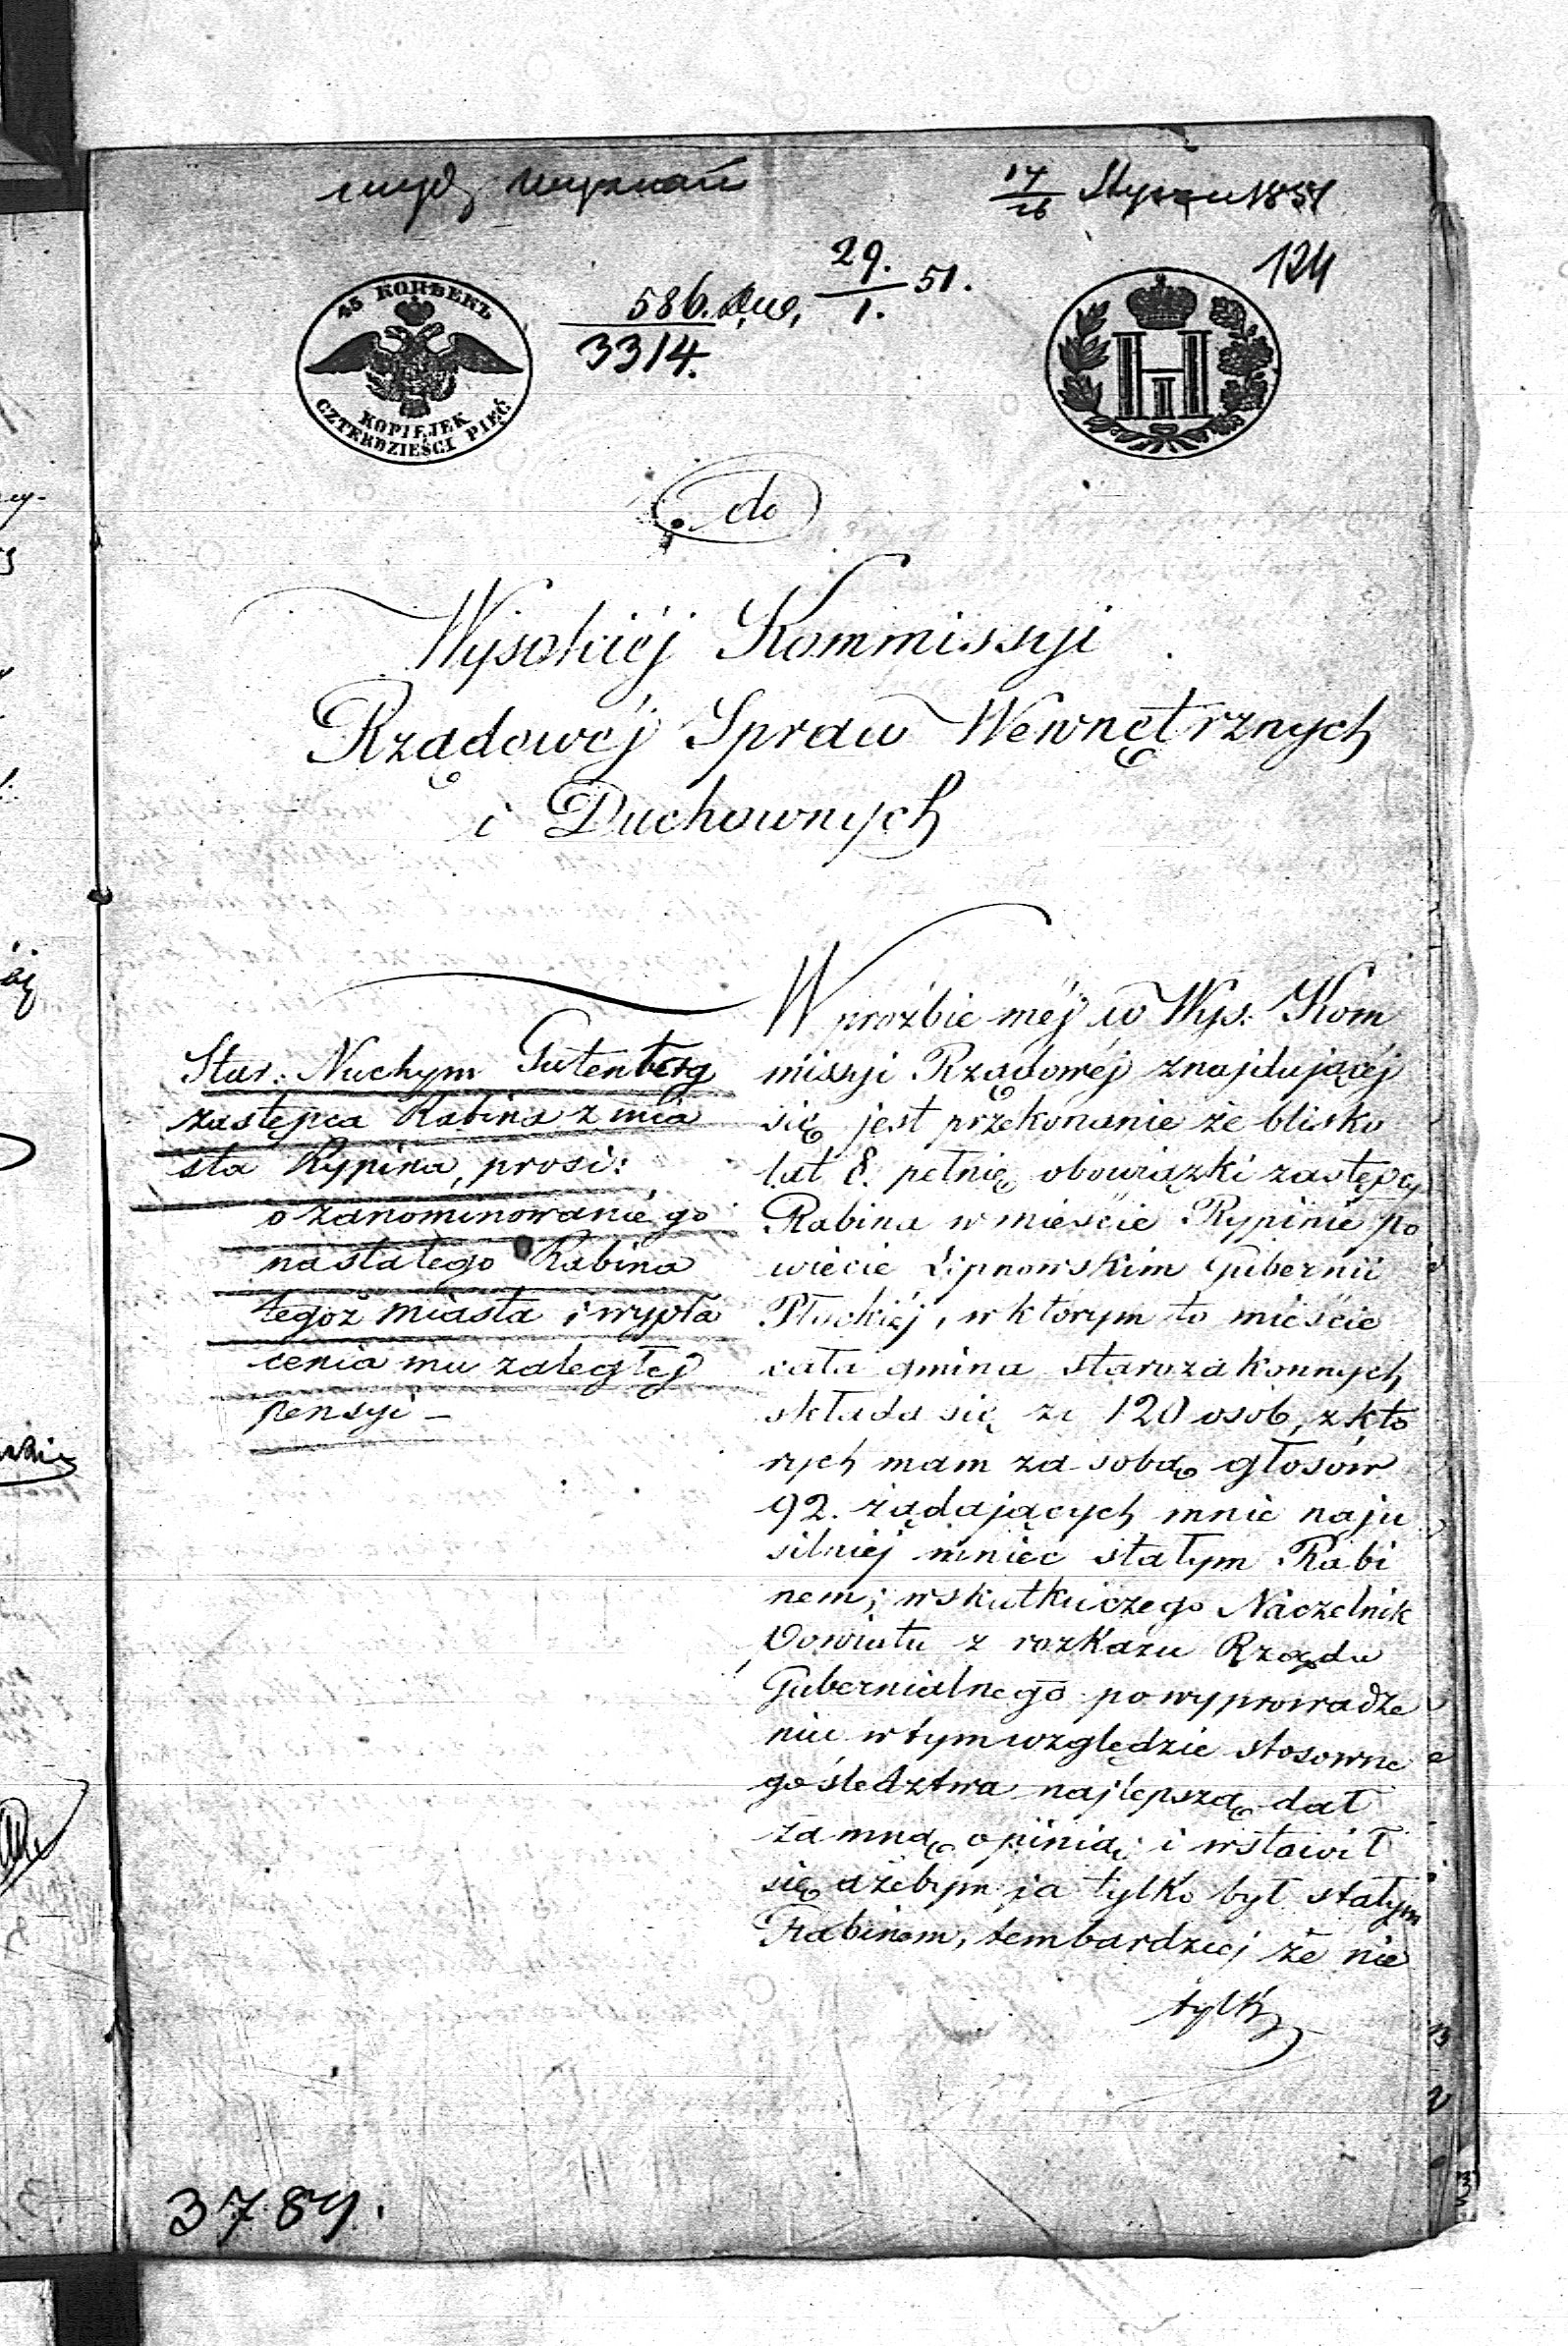 Wyznań
14/26 Stycznia 1851
124
45 КОПѢЕКЪ
KOPIEJEK
CZTERDZIEŚCI PIĘĆ
586.
29./1. 51.
3314.
H I
do
Wysokiéj Kommissyi
Rządowéj Spraw Wewnętrznych
i Duchownych
Star: Nuchym Gutenberg
zastępca Rabina z mia
sta Rypina, prosi:
o zanominowanie go
na stałego Rabina
tegoż miasta i wypła
cenia mu zaległej
pensyi –
W prożbie méj w Wys: Kom
missyi Rządowéj znajdującéj
się jest przekonanie że blisko
lat 8. pełnię obowiązki zastępcy
Rabina w mieście Rypinie po
wiecie Lipnowskim Gubernii
Płockiéj, w którym to mieście
cała gmina starozakonnych
składa się ze 120 osób, z któ
rych mam za sobą głosów
92. żądających mnie naju
silniéj mniec stałym Rabi
nem; wskutku czego Naczelnik
Powiatu z rozkazu Rządu
Gubernialnego po wyprowadze
niu w tym względzie stosowne
go śledztwa najlepszą dał
za mną opinią; i wstawił
się ażebym ja tylko był stałym
Rabinem, tembardziej że nie
tylko
3789.